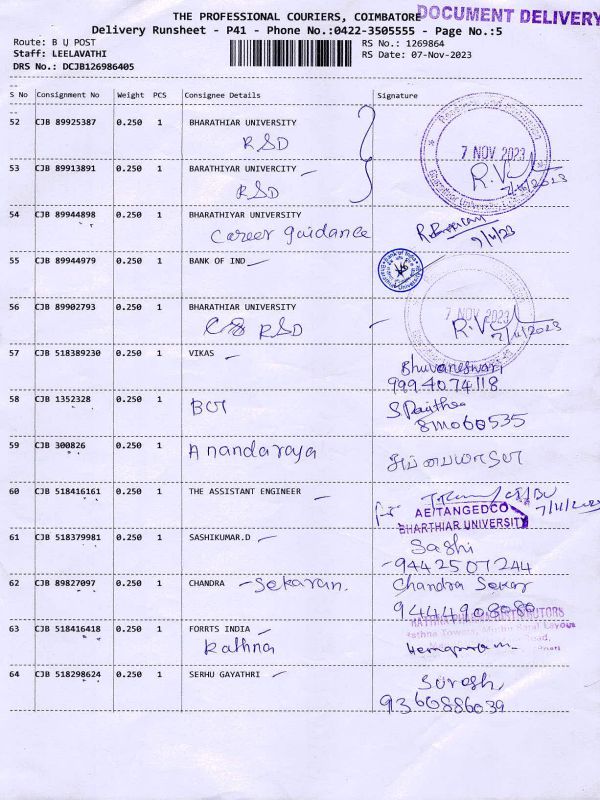 THE PROFESSIONAL COURIERS, COIMBATORE
DOCUMENT DELIVERY
Delivery Runsheet - P41 - Phone No.:0422-3505555 - Page No.:5
Route: B U POST
RS No.: 1269864
Staff: LEELAVATHI
RS Date: 07-Nov-2023
DRS No.: DCJB126986405
S No Consignment No Weight PCS Consignee Details Signature
52 CJB 89925387 0.250 1 BHARATHIAR UNIVERSITY
RSD
7 NOV 2023
53 CJB 89913891 0.250 1 BARATHIYAR UNIVERCITY
RSD
7/11/2023
54 CJB 89944898 0.250 1 BHARATHIYAR UNIVERSITY
Career guidance
7/11/23
55 CJB 89944979 0.250 1 BANK OF IND
56 CJB 89902793 0.250 1 BHARATHIAR UNIVERSITY
RSD
7 NOV 2023
7/11/2023
57 CJB 518389230 0.250 1 VIKAS
Bhuvaneswari
9994074118
58 CJB 1352328 0.250 1 BOT
59 CJB 300826 0.250 1 Anandaraya
60 CJB 518416161 0.250 1 THE ASSISTANT ENGINEER
7/11/2023
AE/TANGEDCO
BHARTHIAR UNIVERSITY
61 CJB 518379981 0.250 1 SASHIKUMAR.D
Sashi
9442507244
62 CJB 89827097 0.250 1 CHANDRA - Sekaran.
Chandra Sekar
9444908080
63 CJB 518416418 0.250 1 FORRTS INDIA
Rathna
64 CJB 518298624 0.250 1 SERHU GAYATHRI
Suresh
9360886039